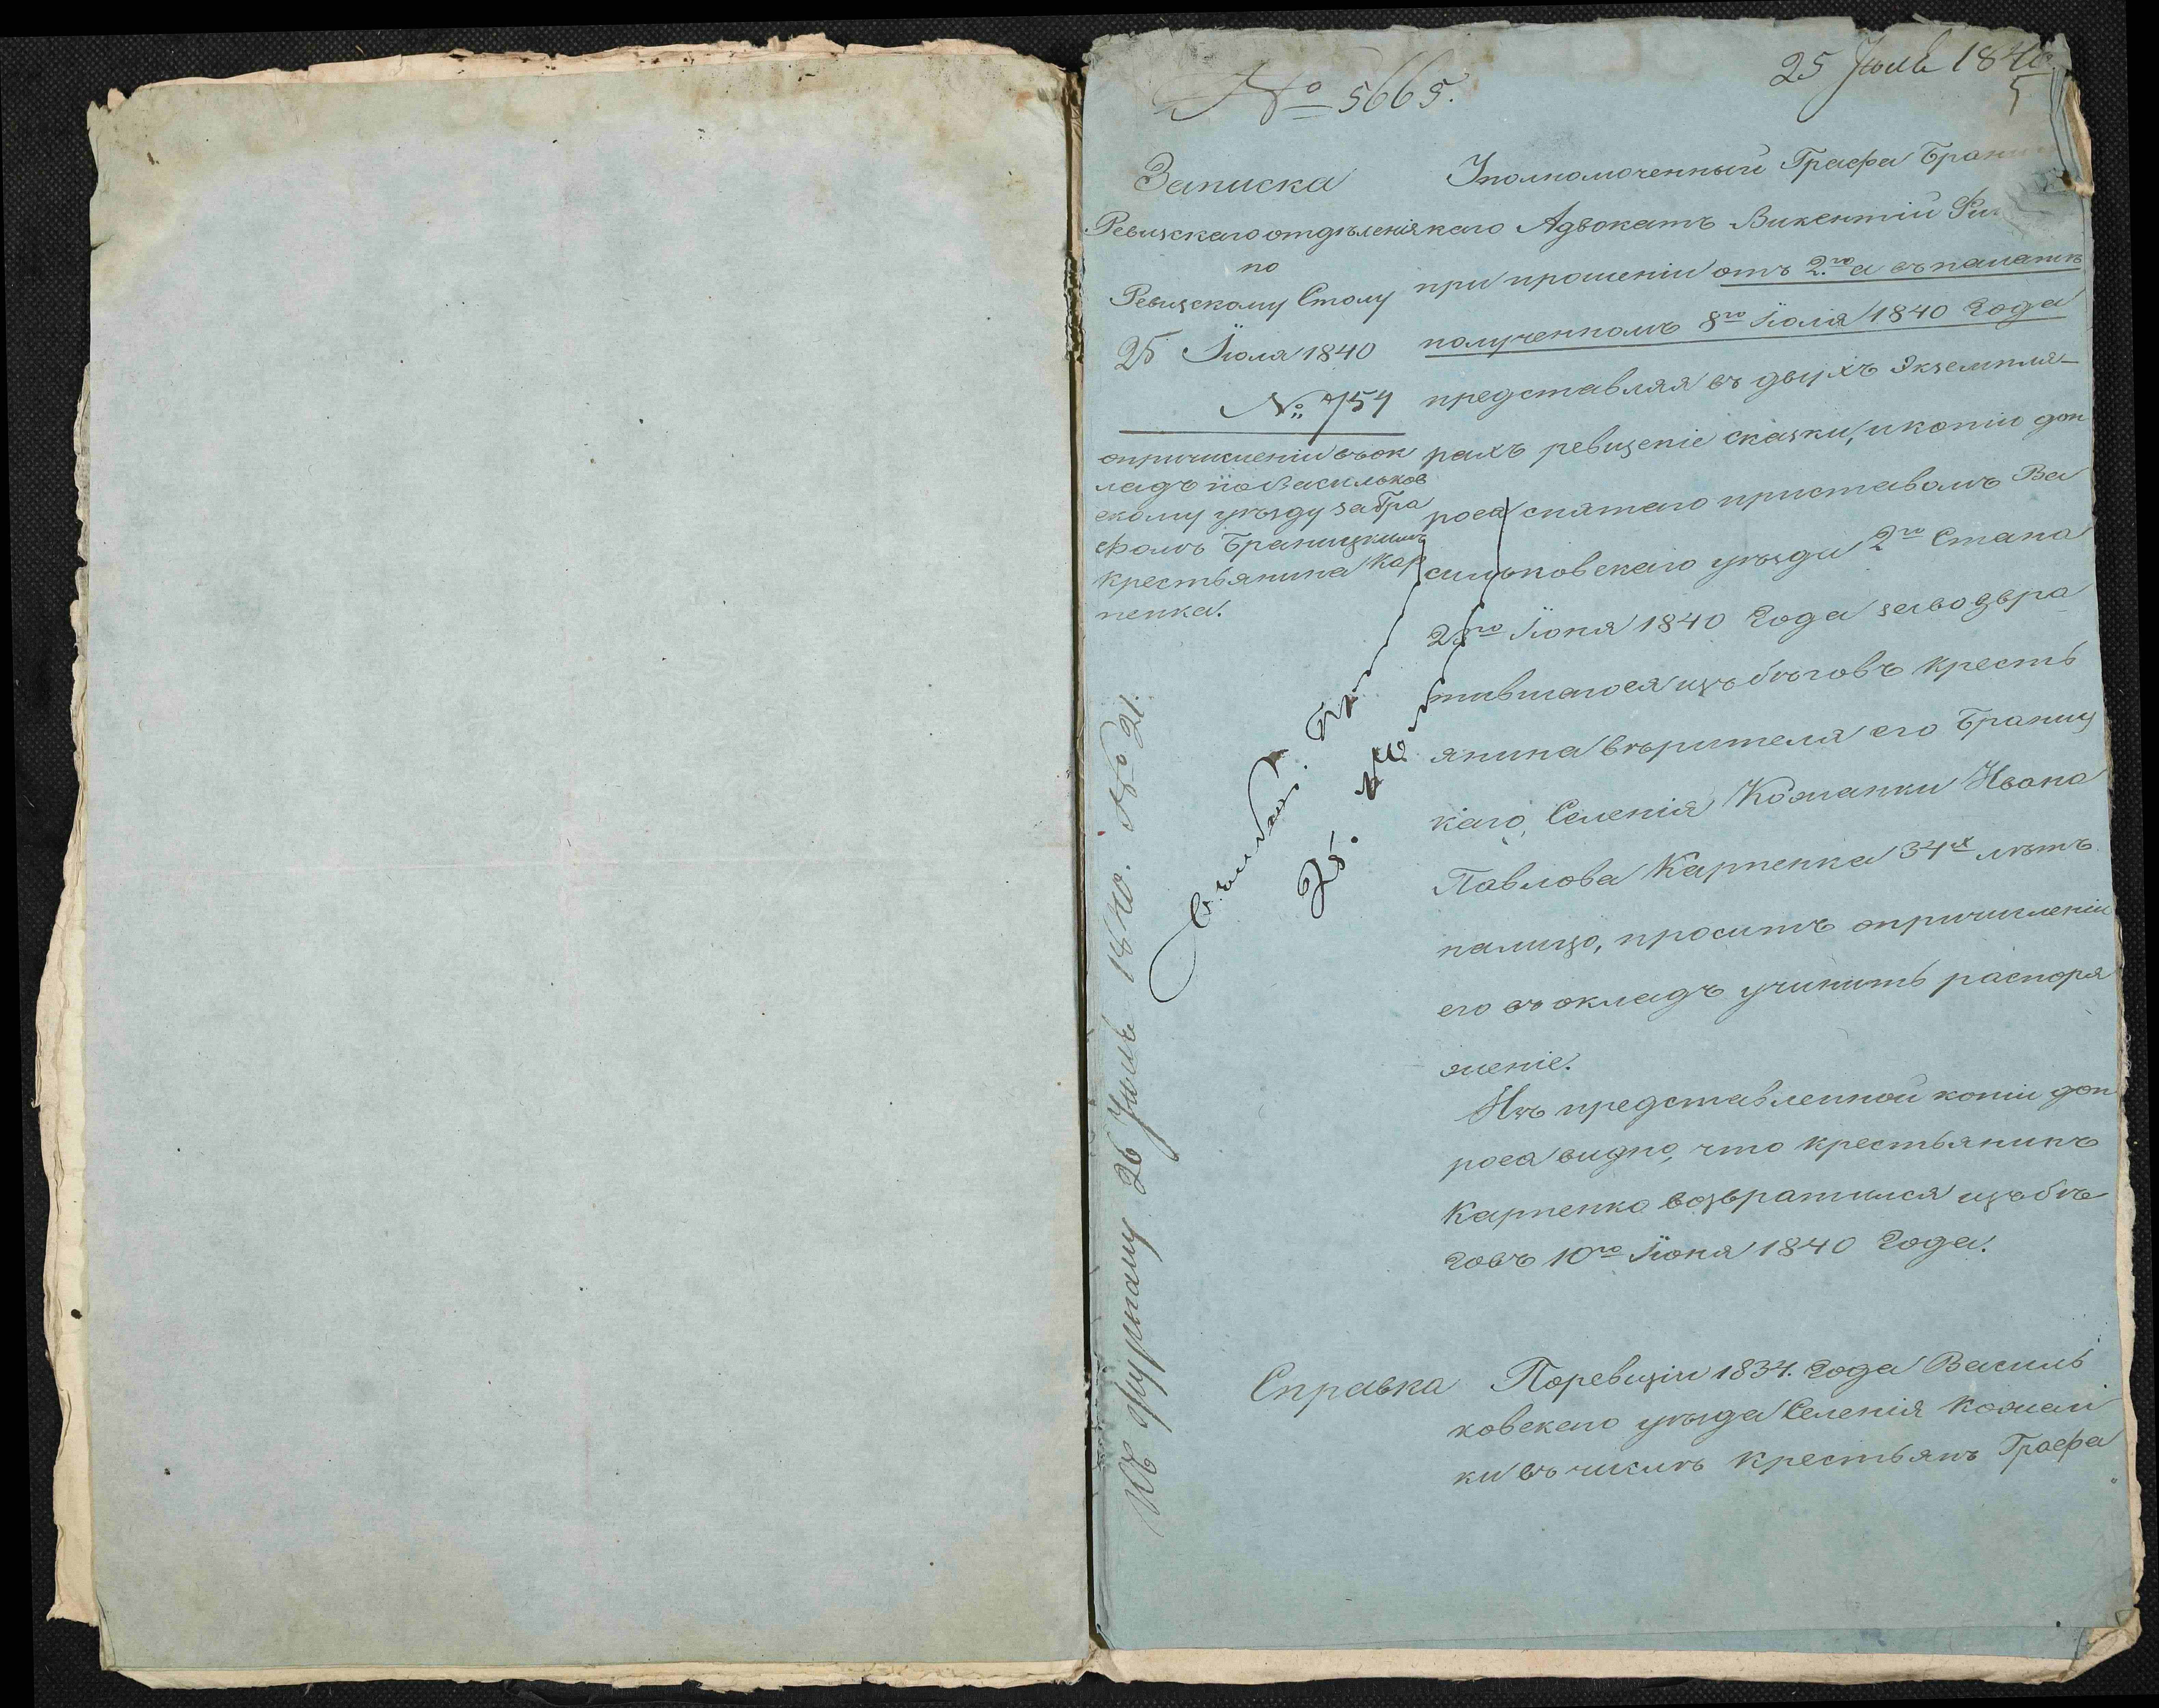 № 5665.
25 Июля 1840
5
Записка
Ревизскаго отдѣленія
по
Ревизскому Столу
25 Іюля 1840
№ 754
о причисленіи въ ок
ладъ по Васильков
скому уѣзду за Гра
фомъ Браницкимъ
крестьянина Кар
пенка.
Уполномоченный Графа Брани
каго Адвокатъ Викентій
при прошеніи отъ 2го а въ палатѣ
полученномъ 8го Іюля 1840 года
представляя въ двухъ экземпля-
рахъ ревизскіе сказки, и копію доп
роса снятаго приставомъ Ва
сильковскаго уѣзда 2го Стана
го Іюня 1840 года за возвра
тившагося изъ бѣговъ кресть
янина вѣрителя его Браниц
каго, Селенія Кожанки Ивана
Павлова Карпенка 34х лѣтъ
налицо, проситъ о причисленіи
его въ окладъ учинить распоря
женіе.
Изъ представленной копіи доп
роса видно, что крестьянинъ
Карпенко возвратился изъ бѣ
говъ 10го Іюня 1840 года.
Справка По ревизіи 1834. года Василь
ковскаго уѣзда Селенія Кожан
ки въ числѣ крестьянъ Графа
Къ журналу 26 Июля 1840. № 21.